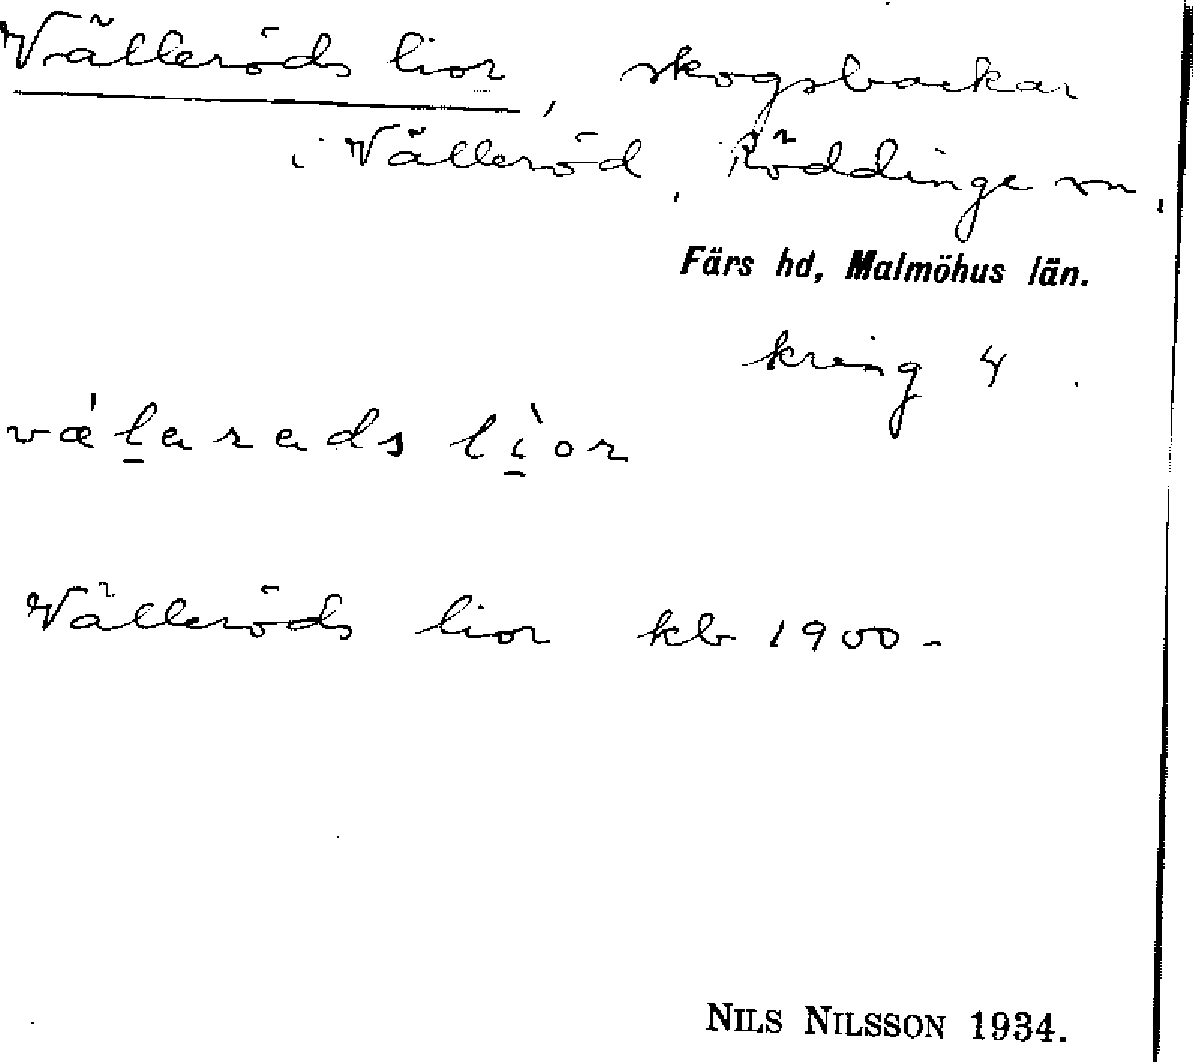 Välleröds lior, skogsbackar
i Välleröd, Röddinge sn,
Färs hd, Malmöhus län.
kring 4.
vǽl̠arads l̠ì̠or
Välleröds lior kb 1900-
NILS NILSSON 1934.